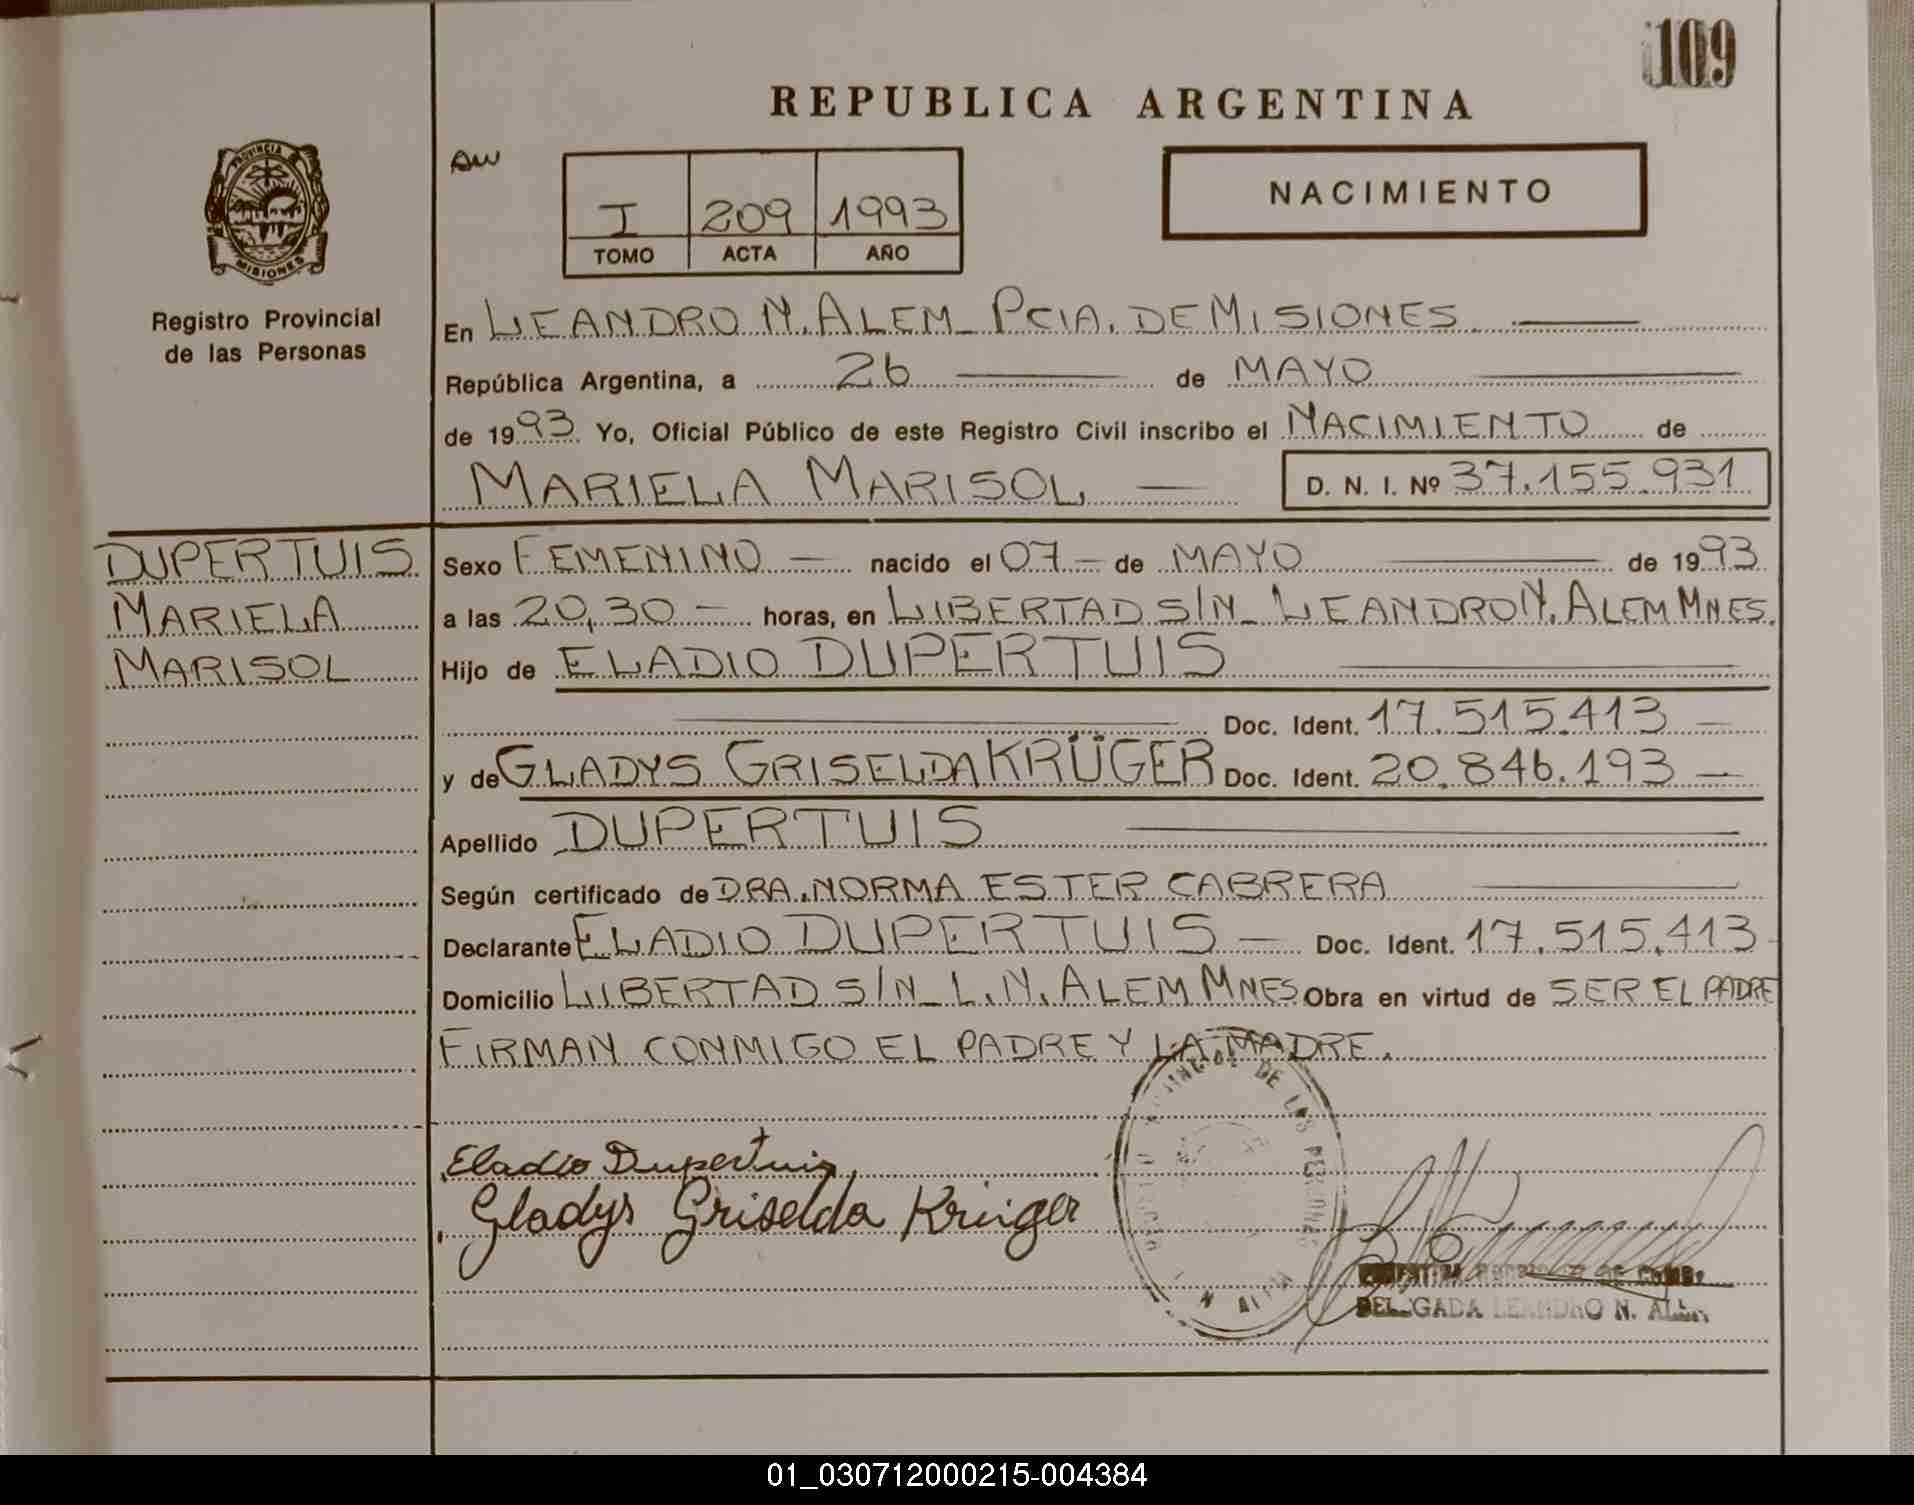 109
REPUBLICA ARGENTINA
AW
I 209 1993
TOMO ACTA AÑO
NACIMIENTO
PROVINCIA
MISIONES
Registro Provincial
de las Personas
En LEANDRO N. ALEM_ PCIA. DE MISIONES
República Argentina, a 26 de MAYO
de 1993. Yo, Oficial Público de este Registro Civil inscribo el NACIMIENTO de
MARIELA MARISOL — D. N. I. Nº 37.155.931
DUPERTUIS
MARIELA
MARISOL
Sexo FEMENINO — nacido el 07 — de MAYO de 1993
a las 20,30 — horas, en LIBERTAD S/N_ LEANDRO N. ALEM MNES.
Hijo de ELADIO DUPERTUIS
Doc. Ident. 17.515.413 —
y de GLADYS GRISELDA KRÜGER Doc. Ident. 20.846.193 —
Apellido DUPERTUIS
Según certificado de DRA. NORMA ESTER CABRERA
Declarante ELADIO DUPERTUIS — Doc. Ident. 17.515.413
Domicilio LIBERTAD S/N_ L.N. ALEM MNES. Obra en virtud de SER EL PADRE
FIRMAN CONMIGO EL PADRE Y LA MADRE.
DE LAS PERSONAS
Eladio Dupertuis
Gladys Griselda Krüger
LEANDRO N.
01_030712000215-004384